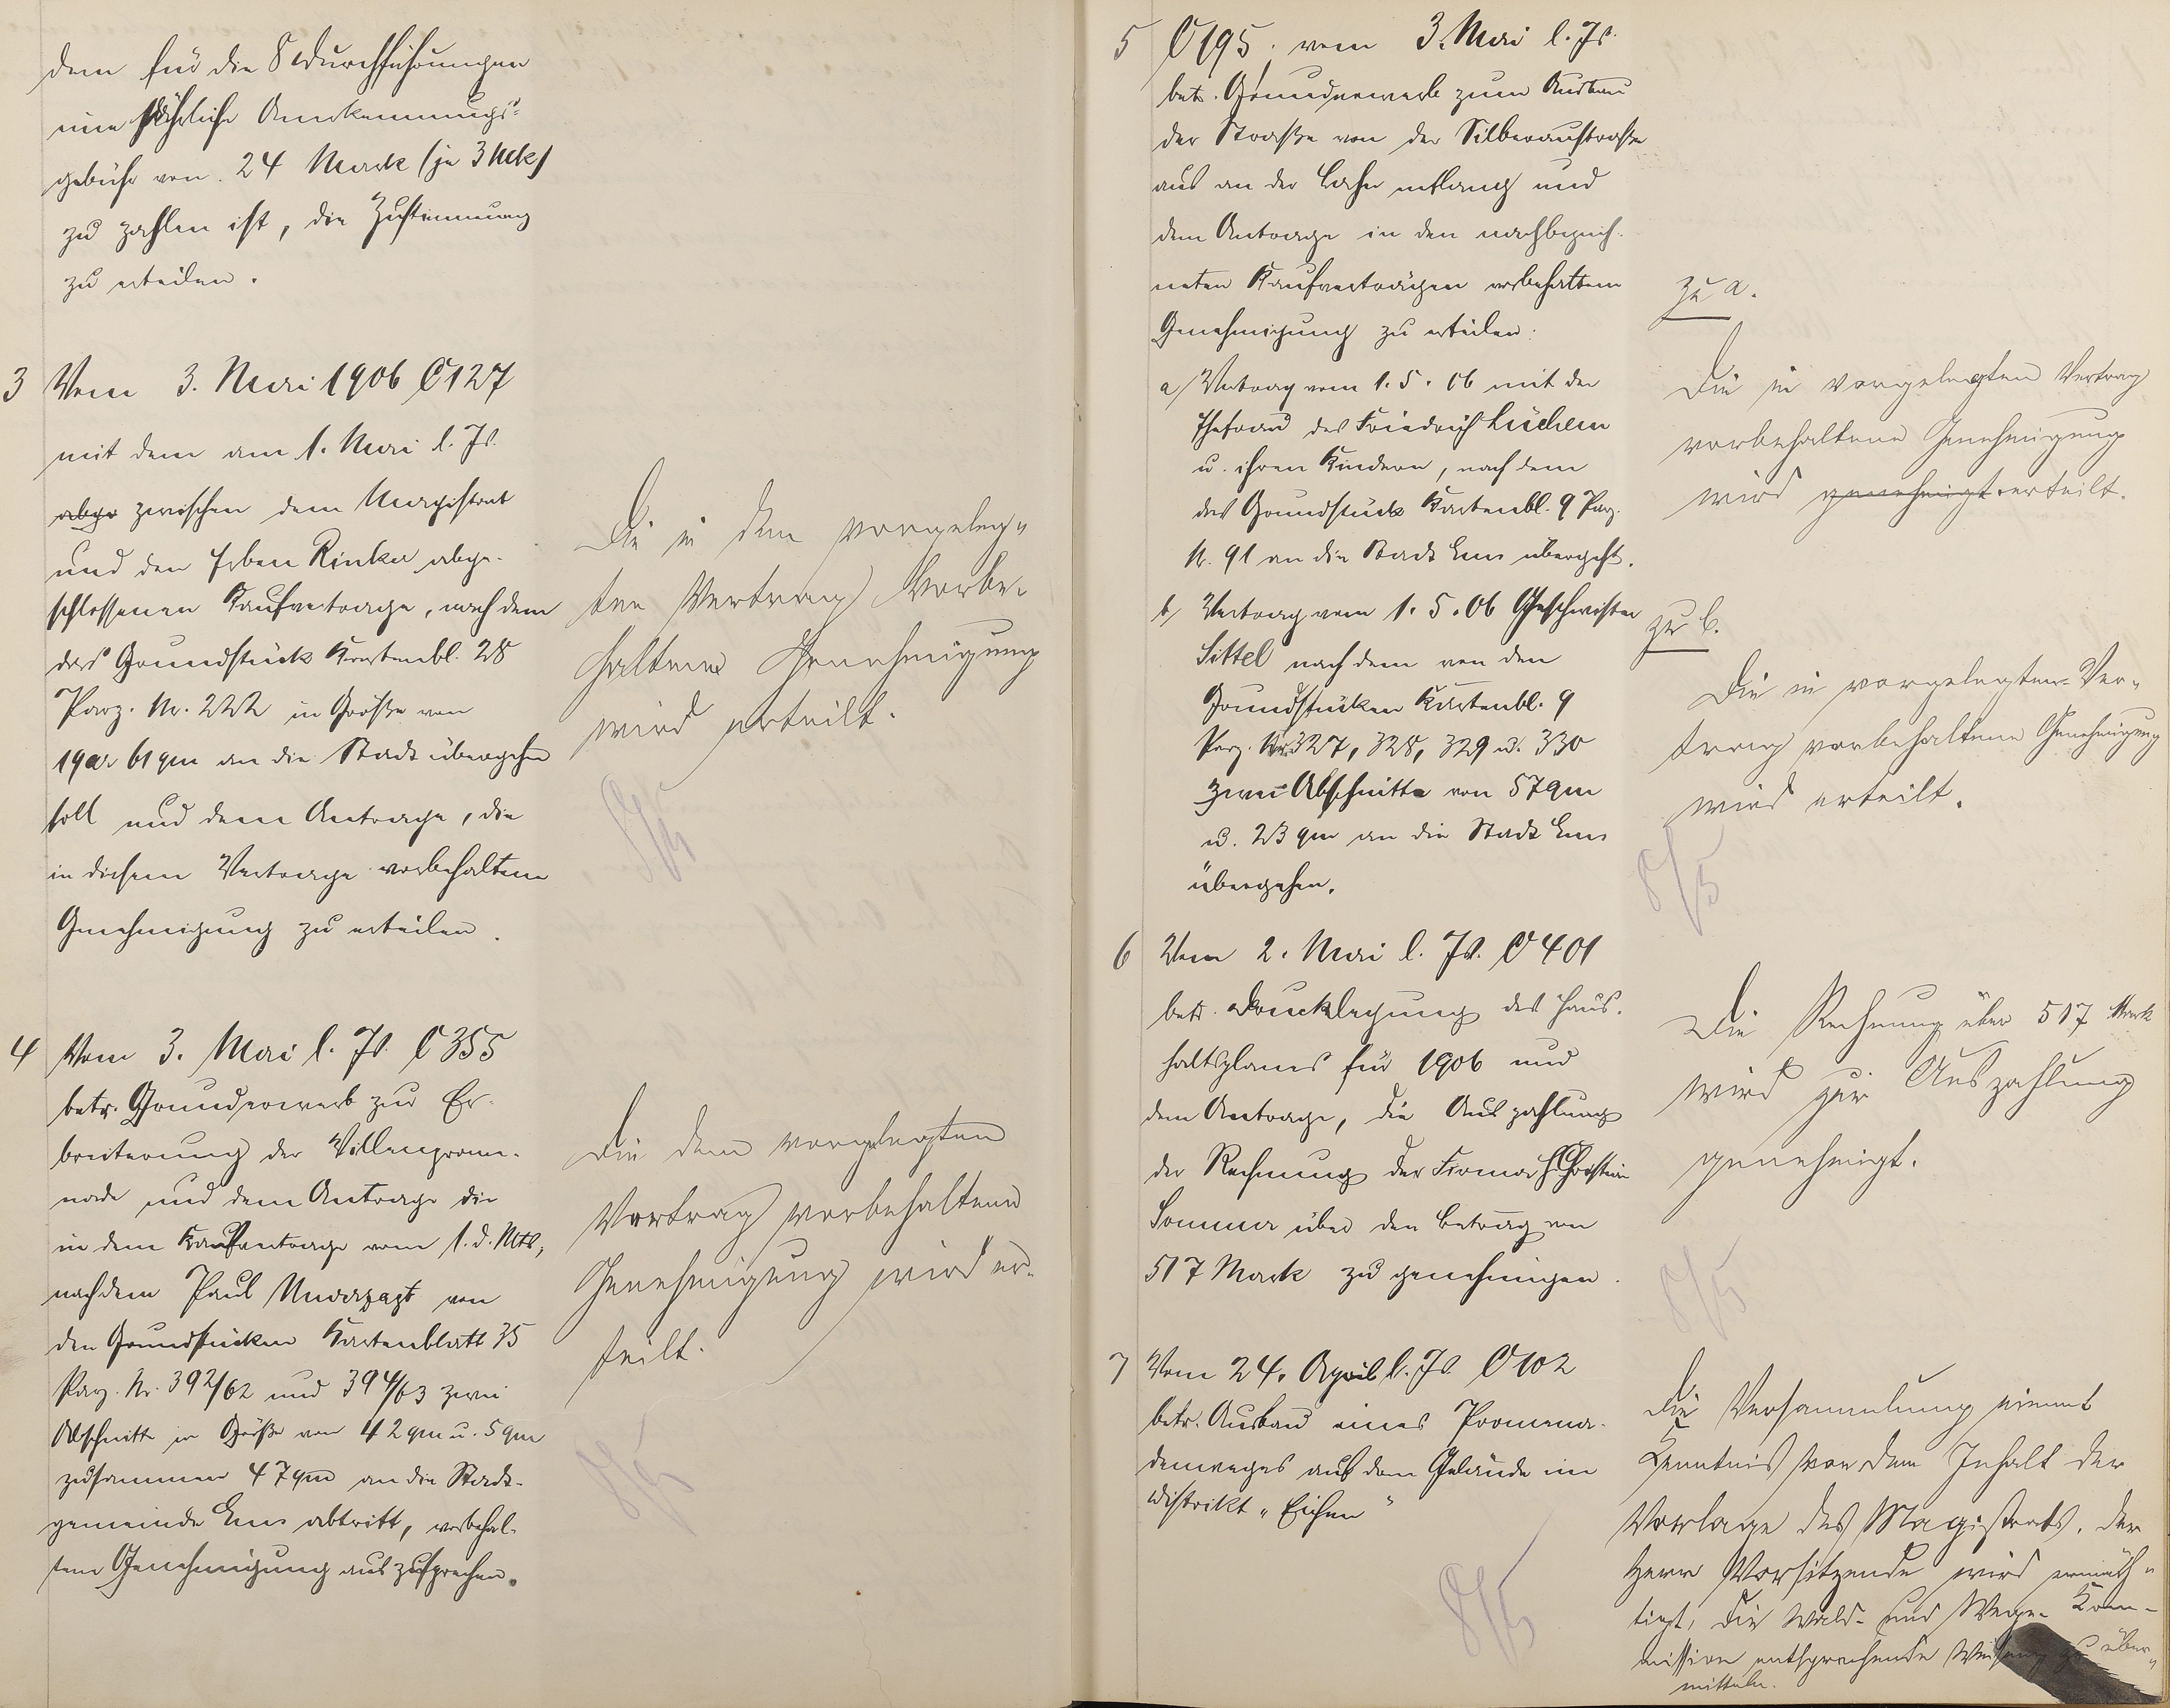 dem für die 8 Durchführungen
eine jährliche Anerkennungs-
gebühr von 24 Mark (je 3 Mk)
zu zahlen ist, die Zustimmung
zu erteilen.
3 Vom 3. Mai 1906 C 127
mit dem am 1. Mai l. Js.
abge zwischen dem Magistrat
und den Erben Rinker abge-
schlossenen Kaufvertrage, nach dem
das Grundstück Kartenbl. 28
Parz. Nr. 222 in Größe von
19 ar 61 qm an die Stadt übergehen
soll und dem Antrage, die
in diesem Vertrage vorbehaltene
Genehmigung zu erteilen.
Die in dem vorgeleg-
ten Vertrag vorbe-
haltene Genehmigung
wird erteilt.
8/5
4 Vom 3. Mai l. Js. C 355
betr. Grunderwerb zur Er-
breiterung der Villenprome-
nade und dem Antrage die
in dem Kaufvertrage vom 1. d. Mts.,
nachdem Paul Unverzagt von
den Grundstücken Kartenblatt 35
Parz. Nr. 392/62 und 394/63 zwei
Abschnitte in Größe von 42 qm u. 5 qm
zusammen 47 qm an die Stadt-
gemeinde Ems abtritt, vorbehal-
tene Genehmigung auszusprechen.
Die dem vorgelegten
Vertrag vorbehaltene
Genehmigung wird er-
teilt.
8/5
5 C 195. vom 3. Mai l. Js.
betr. Grunderwerb zum Ausbau
der Straße von der Silberaustraße
aus an der Lahn entlang und
dem Antrage in den nachbezeich-
neten Kaufverträgen vorbehaltene
Genehmigung zu erteilen:
a/ Vertrag vom 1. 5. 06 mit der
Ehefrau des Friedrich Lüchem
u. ihren Kindern, nach dem
das Grundstück Kartenbl. 9 Parz.
N. 91 an die Stadt Ems übergeht.
b/ Vertrag vom 1. 5. 06 Geschwister
Sittel nach dem von den
Grundstücken Kartenbl. 9
Parz. Nr 327, 328, 329 u. 330
zwei Abschnitte von 57 qm
u. 23 qm an die Stadt Ems
übergehen.
zu a.
Die in vorgelegten Vertrag
vorbehaltene Genehmigung
wird genehmigt erteilt.
zu b.
Die in vorgelegten Ver-
trag vorbehaltene Genehmigung
wird erteilt.
8/5
6 Vom 2. Mai l. Js. C 401
betr. Drucklegung des Haus-
haltsplanes für 1906 und
dem Antrage, die Auszahlung
der Rechnung der Firma H Christian
Sommer über den Betrag von
517 Mark zu genehmigen.
Die Rechnung über 517 Mark
wird zur Auszahlung
genehmigt.
8/5
7 Vom 24. April l. Js. C 102
betr. Ausbau eines Promena-
denweges auf dem Gelände im
Distrikt "Eichen"
8/5
Die Versammlung nimmt
Kenntnis von dem Inhalt der
Vorlage des Magistrats. Der
Herr Vorsitzende wird ermäch-
tigt, die Wald- und Wege-Kom-
mission entsprechende Weisung zu über-
mitteln.